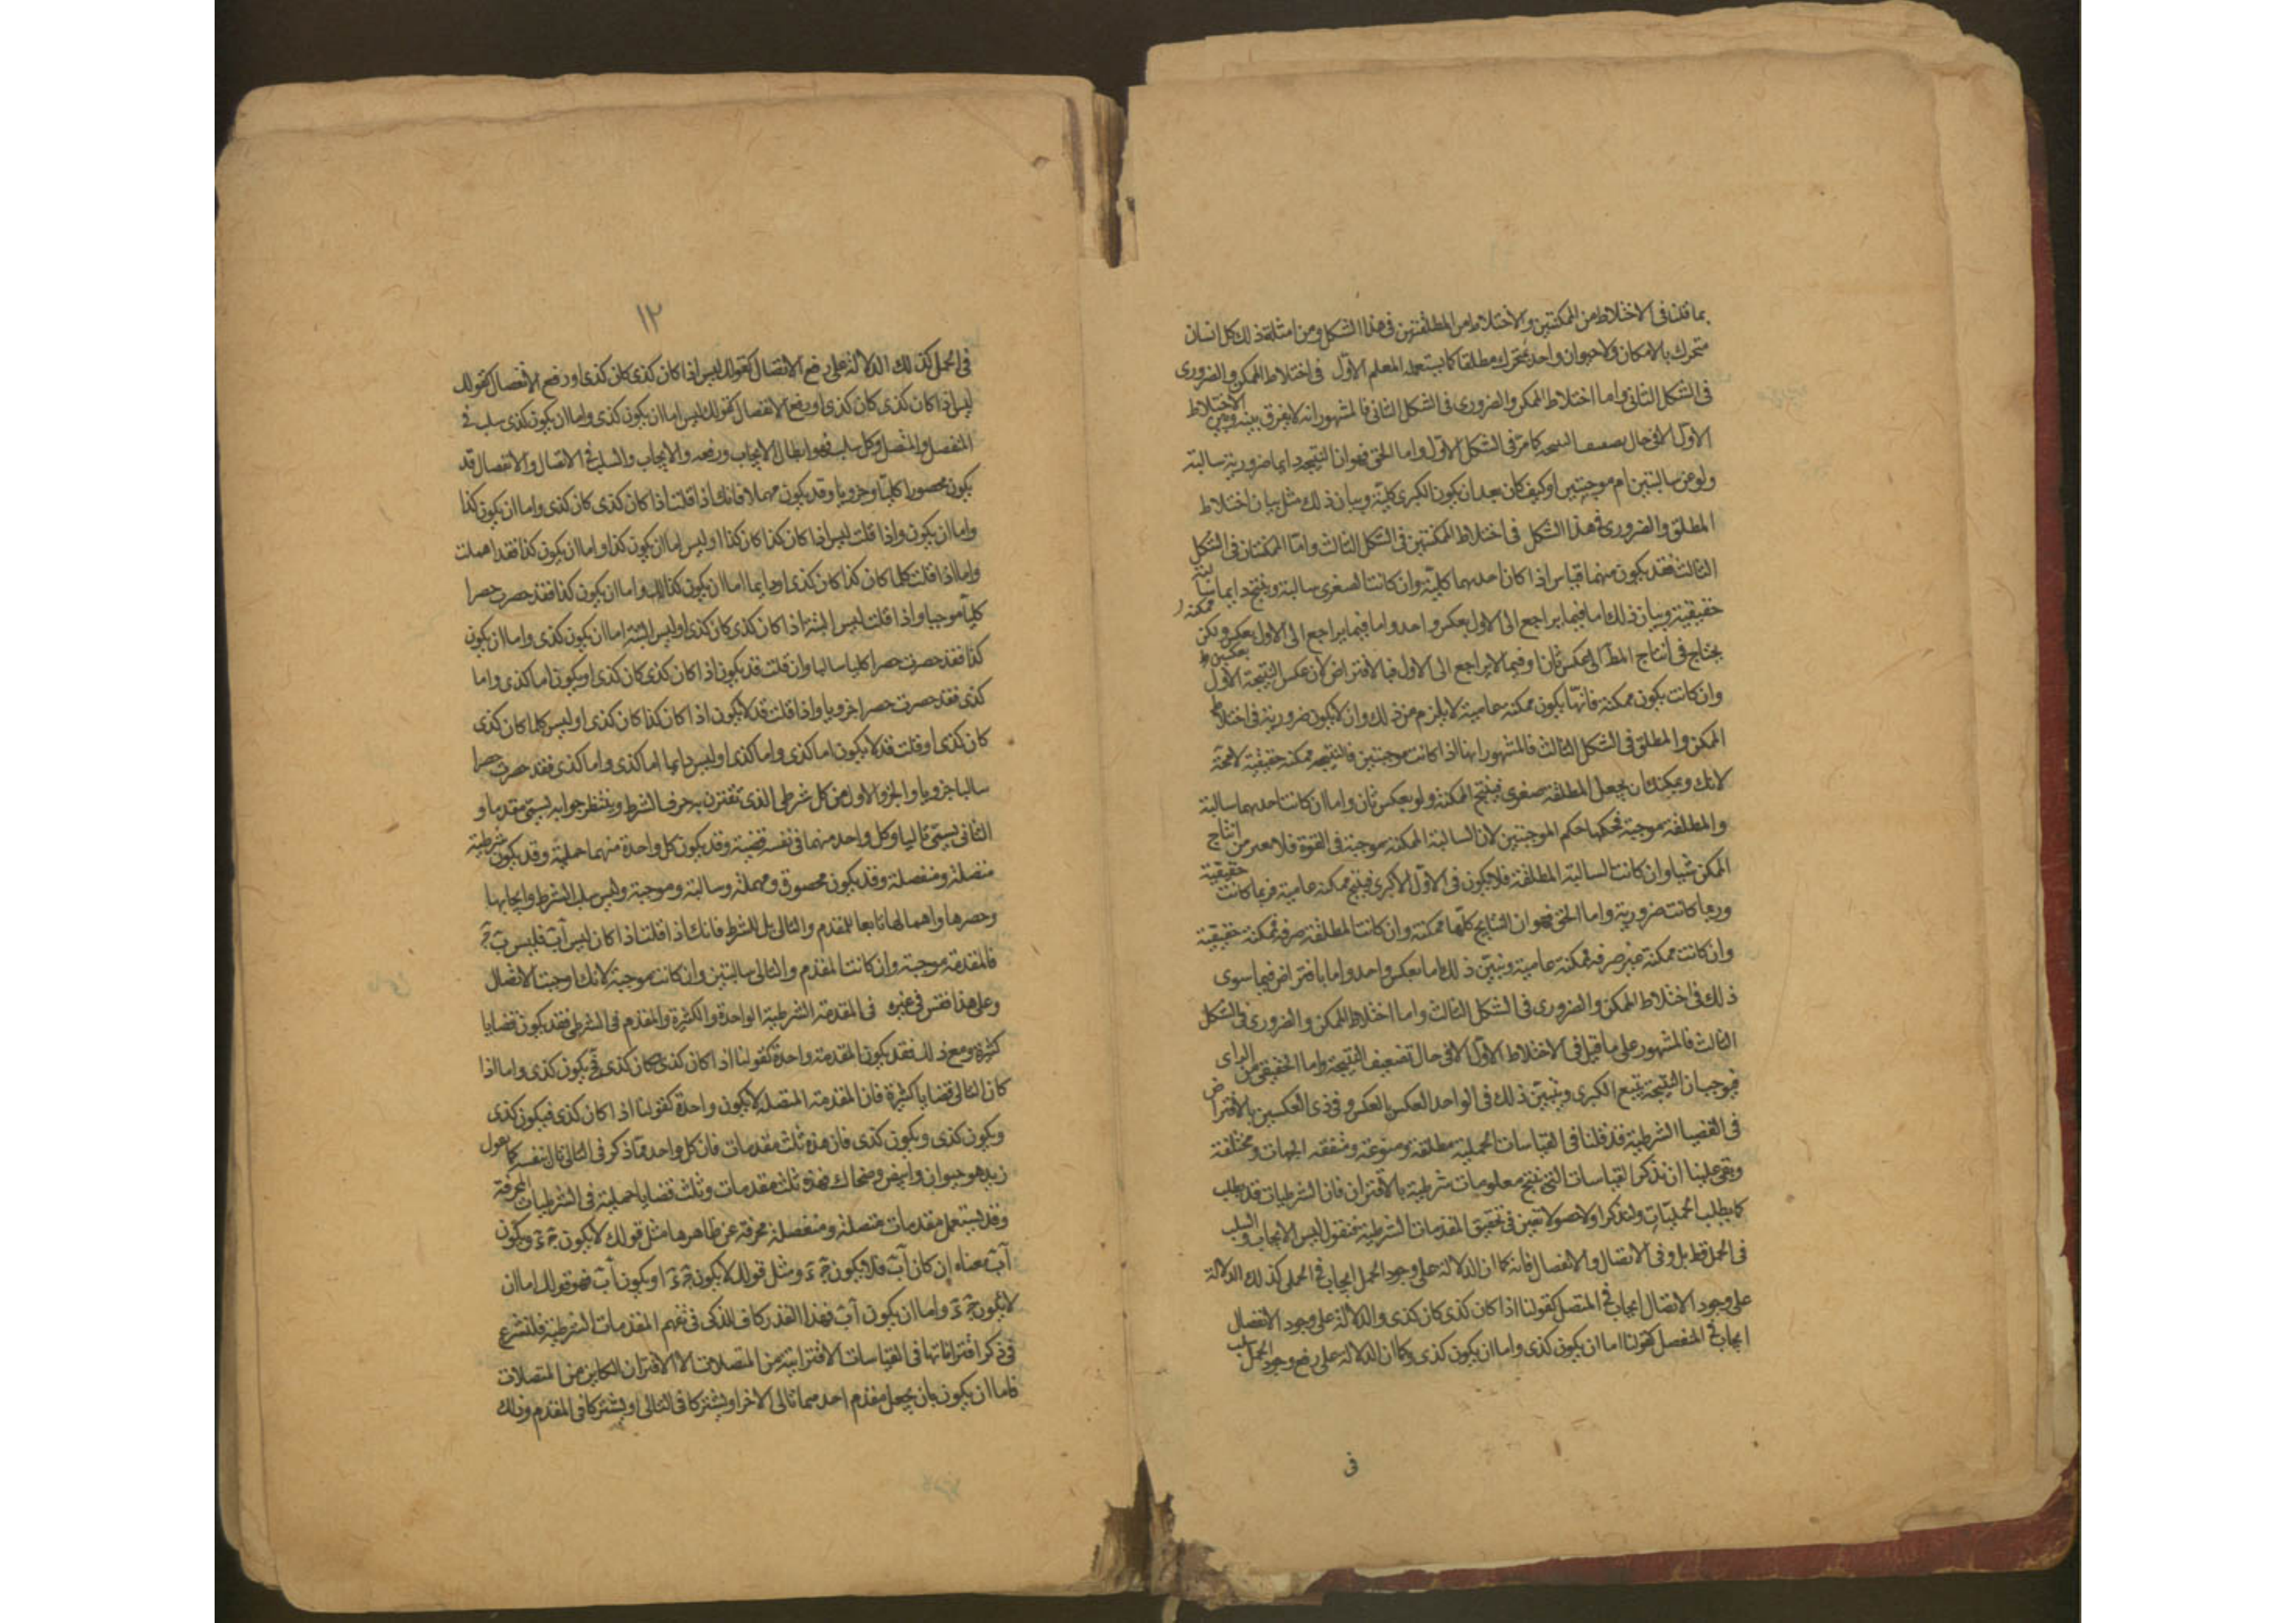 بما قلنا فى الاختلاط من الممكنتين والاختلاط من المطلقتين فى هذا الشكل ومن امثلة ذلك كل انسان
متحرك بالامكان ولا حيوان واحد بمتحرك مطلقا كما يستعمله المعلم الاوّل فى اختلاط الممكن والضرورى
فى الشكل الثانى واما اختلاط الممكن والضرورى فى الشكل الثانى فالمشهور انه لا يفرق بينه وبين الاختلاط
الاوّل الا فى حال كما مرّ فى الشكل الاوّل واما الحق فهو ان النتيجة دايما ضرورية سالبة
ولو عن سالبتين ام موجبتين او كيف كان بعد ان يكون الكبرى كليّة وبيان ذلك مثل بيان اختلاط
المطلق والضرورى فى هذا الشكل فى اختلاط الممكنتين فى الشكل الثالث وامّا الممكنتان فى الشكل
الثالث فقد يكون منهما قياس اذا كان احدهما كليّة وان كانت الصغرى سالبة وينتج دايما
حقيقية وبيان ذلك اما فيما يراجع الى الاول بعكس واحد واما فيما يراجع الى الاول بعكس ولكن
يحتاج فى انتاج المط الى عكس ثان او فيما لا يراجع الى الاول فبالافتراض لان عكس النتيجة الاول
وان كانت يكون ممكنة فانّها يكون ممكنة عامية لا يلزم من ذلك وان لا يكون ضرورية فى اختلاط
الممكن والمطلق فى الشكل الثالث فالمشهور انهما اذا كانت موجبتين فالنتيجة ممكنة حقيقية لا محة
لانك ويمكنك ان يجعل المطلقة صغرى فينتج الممكنة ولو بعكس ثان واما ان كانت احدهما سالبة
والمطلقة موجبة فحكمها حكم الموجبتين لان السالبة الممكنة موجبة فى القوة فلا من انتاج
الممكن شيا وان كانت السالبة المطلقة فلا يكون فى الاوّل الا كبرى فينتج ممكنة عامية فربما كانت حقيقية
وربما كانت ضرورية واما الحق فهو ان النتايج كلّها ممكنة وان كانت المطلقة صرفه فممكنة حقيقية
وان كانت ممكنة غير صرفه فممكنة عامية ونبيّن ذلك اما بعكس واحد واما بافتراض فيما سوى
ذلك فى اختلاط الممكن والضرورى فى الشكل الثالث واما اختلاط الممكن والضرورى فى الشكل
الثالث فالمشهور على ما قيل فى الاختلاط الاوّل الا فى حال تضعيف النتيجة واما الحقيقى من الراى
فيوجب ان النتيجة يتبع الكبرى ونبيّن ذلك فى الواحد العكس بالعكس وفى ذى العكسين بالافتراض
فى القضيا الشرطية قد قلنا فى القياسات الحملية مطلقة ومنوعة ومتفقة الجهات ومختلفة
وبقى علينا ان نذكر القياسات التى ينتج معلومات شرطية بالاقتران فان الشرطيات قد يطلب
كما يطلب الحمليّات ولنذكر اولا اصولا تعين فى تحقيق المقدمات الشرطية فنقول ليس الايجاب والسلب
فى الحمل فقط بل وفى الاتصال والانفصال فانه كما ان الدلالة على وجود الحمل ايجاب فى الحملى كذلك الدلالة
على وجود الاتصال ايجاب فى المتصل كقولنا اذا كان كذى كان كذى والدلالة على وجود الانفصال
ايجاب فى المنفصل كقولنا اما ان يكون كذى واما ان يكون كذى وكما ان الدلالة على رفع وجود الحمل سلب
فى
١٢
فى الحمل كذلك الدلالة على رفع الاتصال كقولك ليس اذا كان كذى كان كذى او رفع الانفصال كقولك
ليس اذا كان كذى كان كذى او رفع الانفصال كقولك ليس اما ان يكون كذى واما ان يكون كذى سلب فى
المنفصل والمتصل وكل سلب فهو ابطال الايجاب ورفعه والايجاب والسلب فى الاتصال والانفصال قد
يكون محصورا كليّا وجزويا وقد يكون مهملا فانك اذا قلت اذا كان كذى كان كذى واما ان يكون كذا
واما ان يكون واذا قلت ليس اذا كان كذا كان كذا او ليس اما ان يكون كذا واما ان يكون كذا فقد اهملت
واما اذا قلت كلما كان كذا كان كذى او دايما اما ان يكون كذا واما ان يكون كذا فقد حصرت حصرا
كليّا موجبا واذا قلت ليس البتة اذا كان كذى كان كذى او ليس البتة اما ان يكون كذى واما ان يكون
كذا فقد حصرت حصرا كليا سالبا وان قلت قد يكون اذا كان كذى كان كذى او يكون اما كذى واما
كذى فقد حصرت حصرا جزويا واذا قلت قد لا يكون اذا كان كذا كان كذى او ليس كلما كان كذى
كان كذى او قلت قد لا يكون اما كذى واما كذى او ليس دايما اما كذى واما كذى فقد حصرت حصرا
سالبا جزويا والجزو الاول من كل شرطى الذى تقترن به حرف الشرط وينتظر جوابه يسمّى مقدما و
الثانى يسمّى تاليا وكل واحد منهما فى نفسه قضية وقد يكون كل واحدة منهما حملية وقد يكون شرطية
متصلة ومنفصلة وقد يكون محصورة ومهملة وسالبة وموجبة وليس سلب الشرط وايجابها
وحصرها واهمالها تابعا للمقدم والتالى بل للشرط فانك اذا قلت اذا كان ليس آب فليس ب ج
فالمقدمة موجبة وان كانت المقدم والتالى سالبتين وان كانت موجبة لانك اوجبت الاتصال
وعلى هذا فقس فى غيره فى المقدمة الشرطية الواحدة والكثيرة والمقدم فى الشرطى فقد يكون قضايا
كثيرة ومع ذلك فقد يكون المقدمة واحدة كقولنا اذا كان كذى وكان كذى فح يكون كذى واما اذا
كان التالى قضايا كثيرة فان المقدمة المتصلة لا يكون واحدة كقولنا اذا كان كذى فيكون كذى
ويكون كذى ويكون كذى فان هذه ثلث مقدمات فان كل واحد مما ذكر فى التالى تال بنفسه كما نقول
زيد هو حيوان وابيض وضحاك فهذه ثلث مقدمات وثلث قضايا حملية فى الشرطيات المحرفة
وقد يستعمل مقدمات متصلة ومنفصلة محرفة عن ظاهرها مثل قولك لا يكون ج د ويكون
آب معناه ان كان آب فلا يكون ج د ومثل قولك لا يكون ج د او يكون آب فهو قولك اما ان
لا يكون ج د واما ان يكون آب فهذا القدر كاف للذكى فى تفهم المقدمات الشرطية فلنشرع
فى ذكر اقتراناتها فى القياسات الاقترانية من المتصلات الا الاقتران الكاين من المتصلات
فاما ان يكون بان يجعل مقدم احدهما تالى الاخر او يشتركا فى التالى او يشتركا فى المقدم وذلك